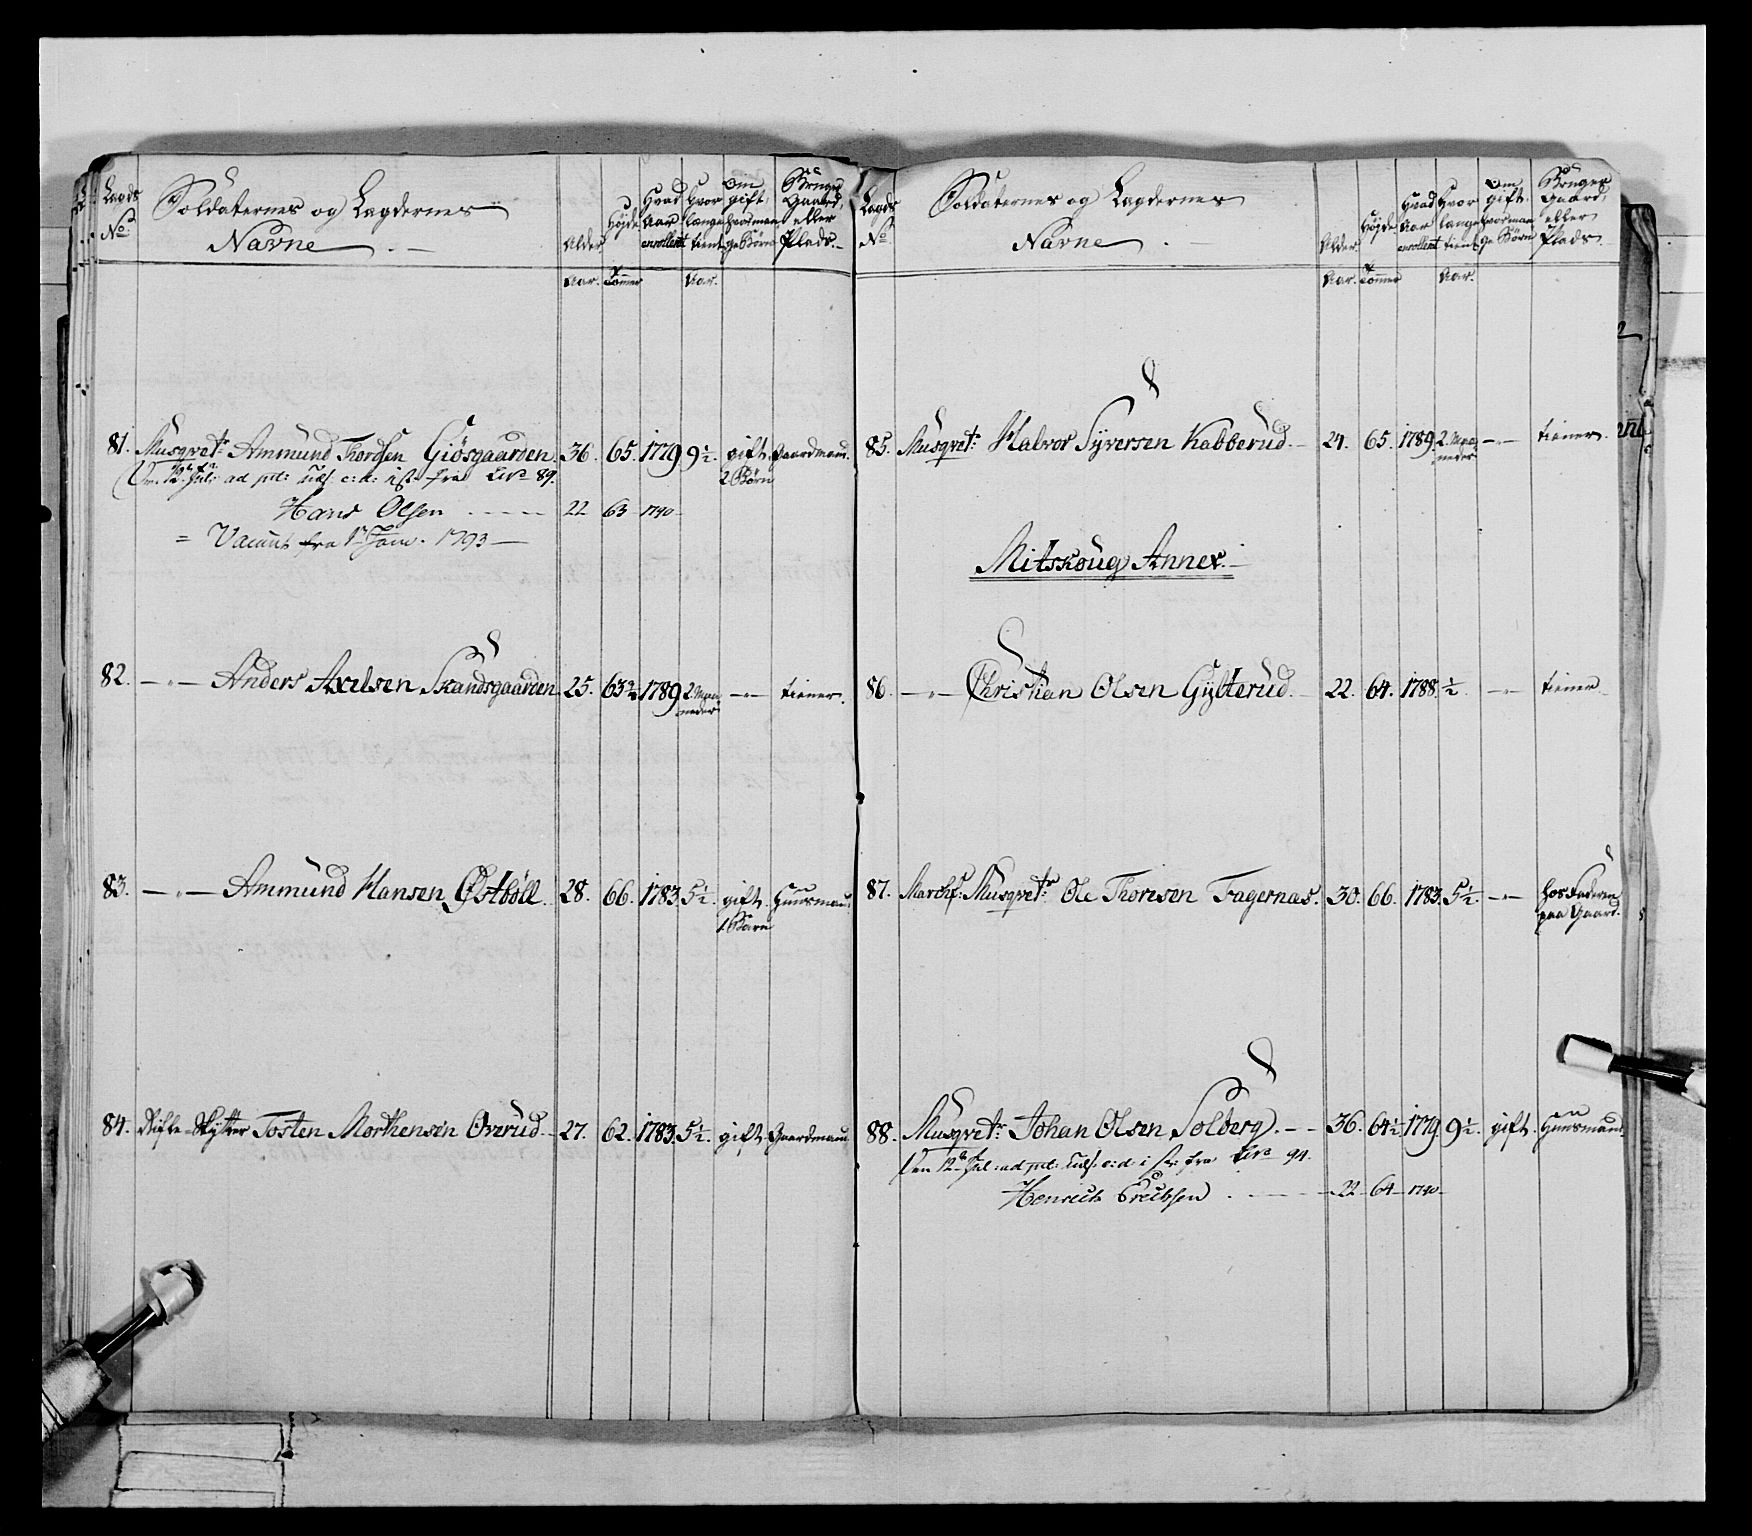 Lagds No Soldaternes og Lagdernes Navne Alder Højde Hvad Aar enrollert Hvor lange tient Om gift, hvormange Børn Bruger Gaard, eller Plads.
Aar. Tommer Aar.
81. Musqvetr Ammund Thordsen Giösgaarden 36. 65. 1779 9½. gift Gaardmand.
2 Børn
Hans Olsen 22 63 1790
= Vacant fra 1 Janv. 1793
82. —"— Anders Axelsen Skandsgaarden 25. 63¾ 1789 2 Maaneder —"— tiener.
83. —"— Ammund Hansen Østböll. 28. 66. 1783. 5½. gift. Huusmand.
1. Barn
84. Rifle-Skytter Tosten Morthensen Overud. 27. 62. 1783. 5½. gift. Gaardmand.
Lagds No Soldaternes og Lagdernes Navne Alder Højde Hvad Aar enrollert Hvor lange tient Om gift, hvormange Børn Bruger Gaard, eller Plads.
Aar. Tommer Aar.
85. Musqvetr: Halvor Syversen Kabberud. 24. 65. 1789. 2. Maaneder —"— tiener.
Mitskoug Annex.
86. —"— Christian Olsen Gylterud. 22. 64. 1788. ½. —"— tiener.
87. Marchf: Musqvetr: Ole Thorisen Fagernæs. 30. 66. 1783. 5½. —"— hos Faderen paa Gaard.
88. Musqvetr Johan Olsen Solberg. 36. 64½ 1779. 9½. gift. Huusmand.
Henrich Erichsen 22 64 1790